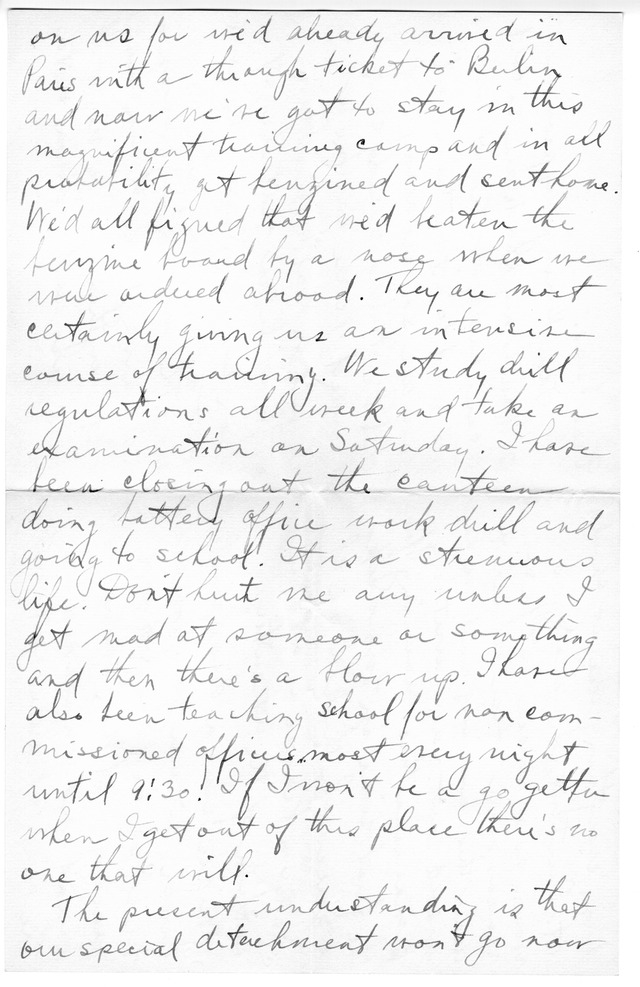 on us for we'd already arrived in
Paris with a through ticket to Berlin
and now we've got to stay in this
magnificent training camp and in all
probability get benzined and sent home.
We'd all figured that we'd beaten the
benzine board by a nose when we
were ordered abroad. They are most
certainly giving us an intensive
course of training. We study drill
regulations all week and take an
examination on Saturday. I have
been closing out the canteen
doing battery office work drill and
going to school. It is a strenuous
life. Don't hurt me any unless I
get mad at someone or something
and then there's a blow up. I have
also been teaching school for non com-
missioned officers most every night
until 9:30! If I won't be a go getter
when I get out of this place there's no
one that will.
The present understanding is that
our special detachment won't go now